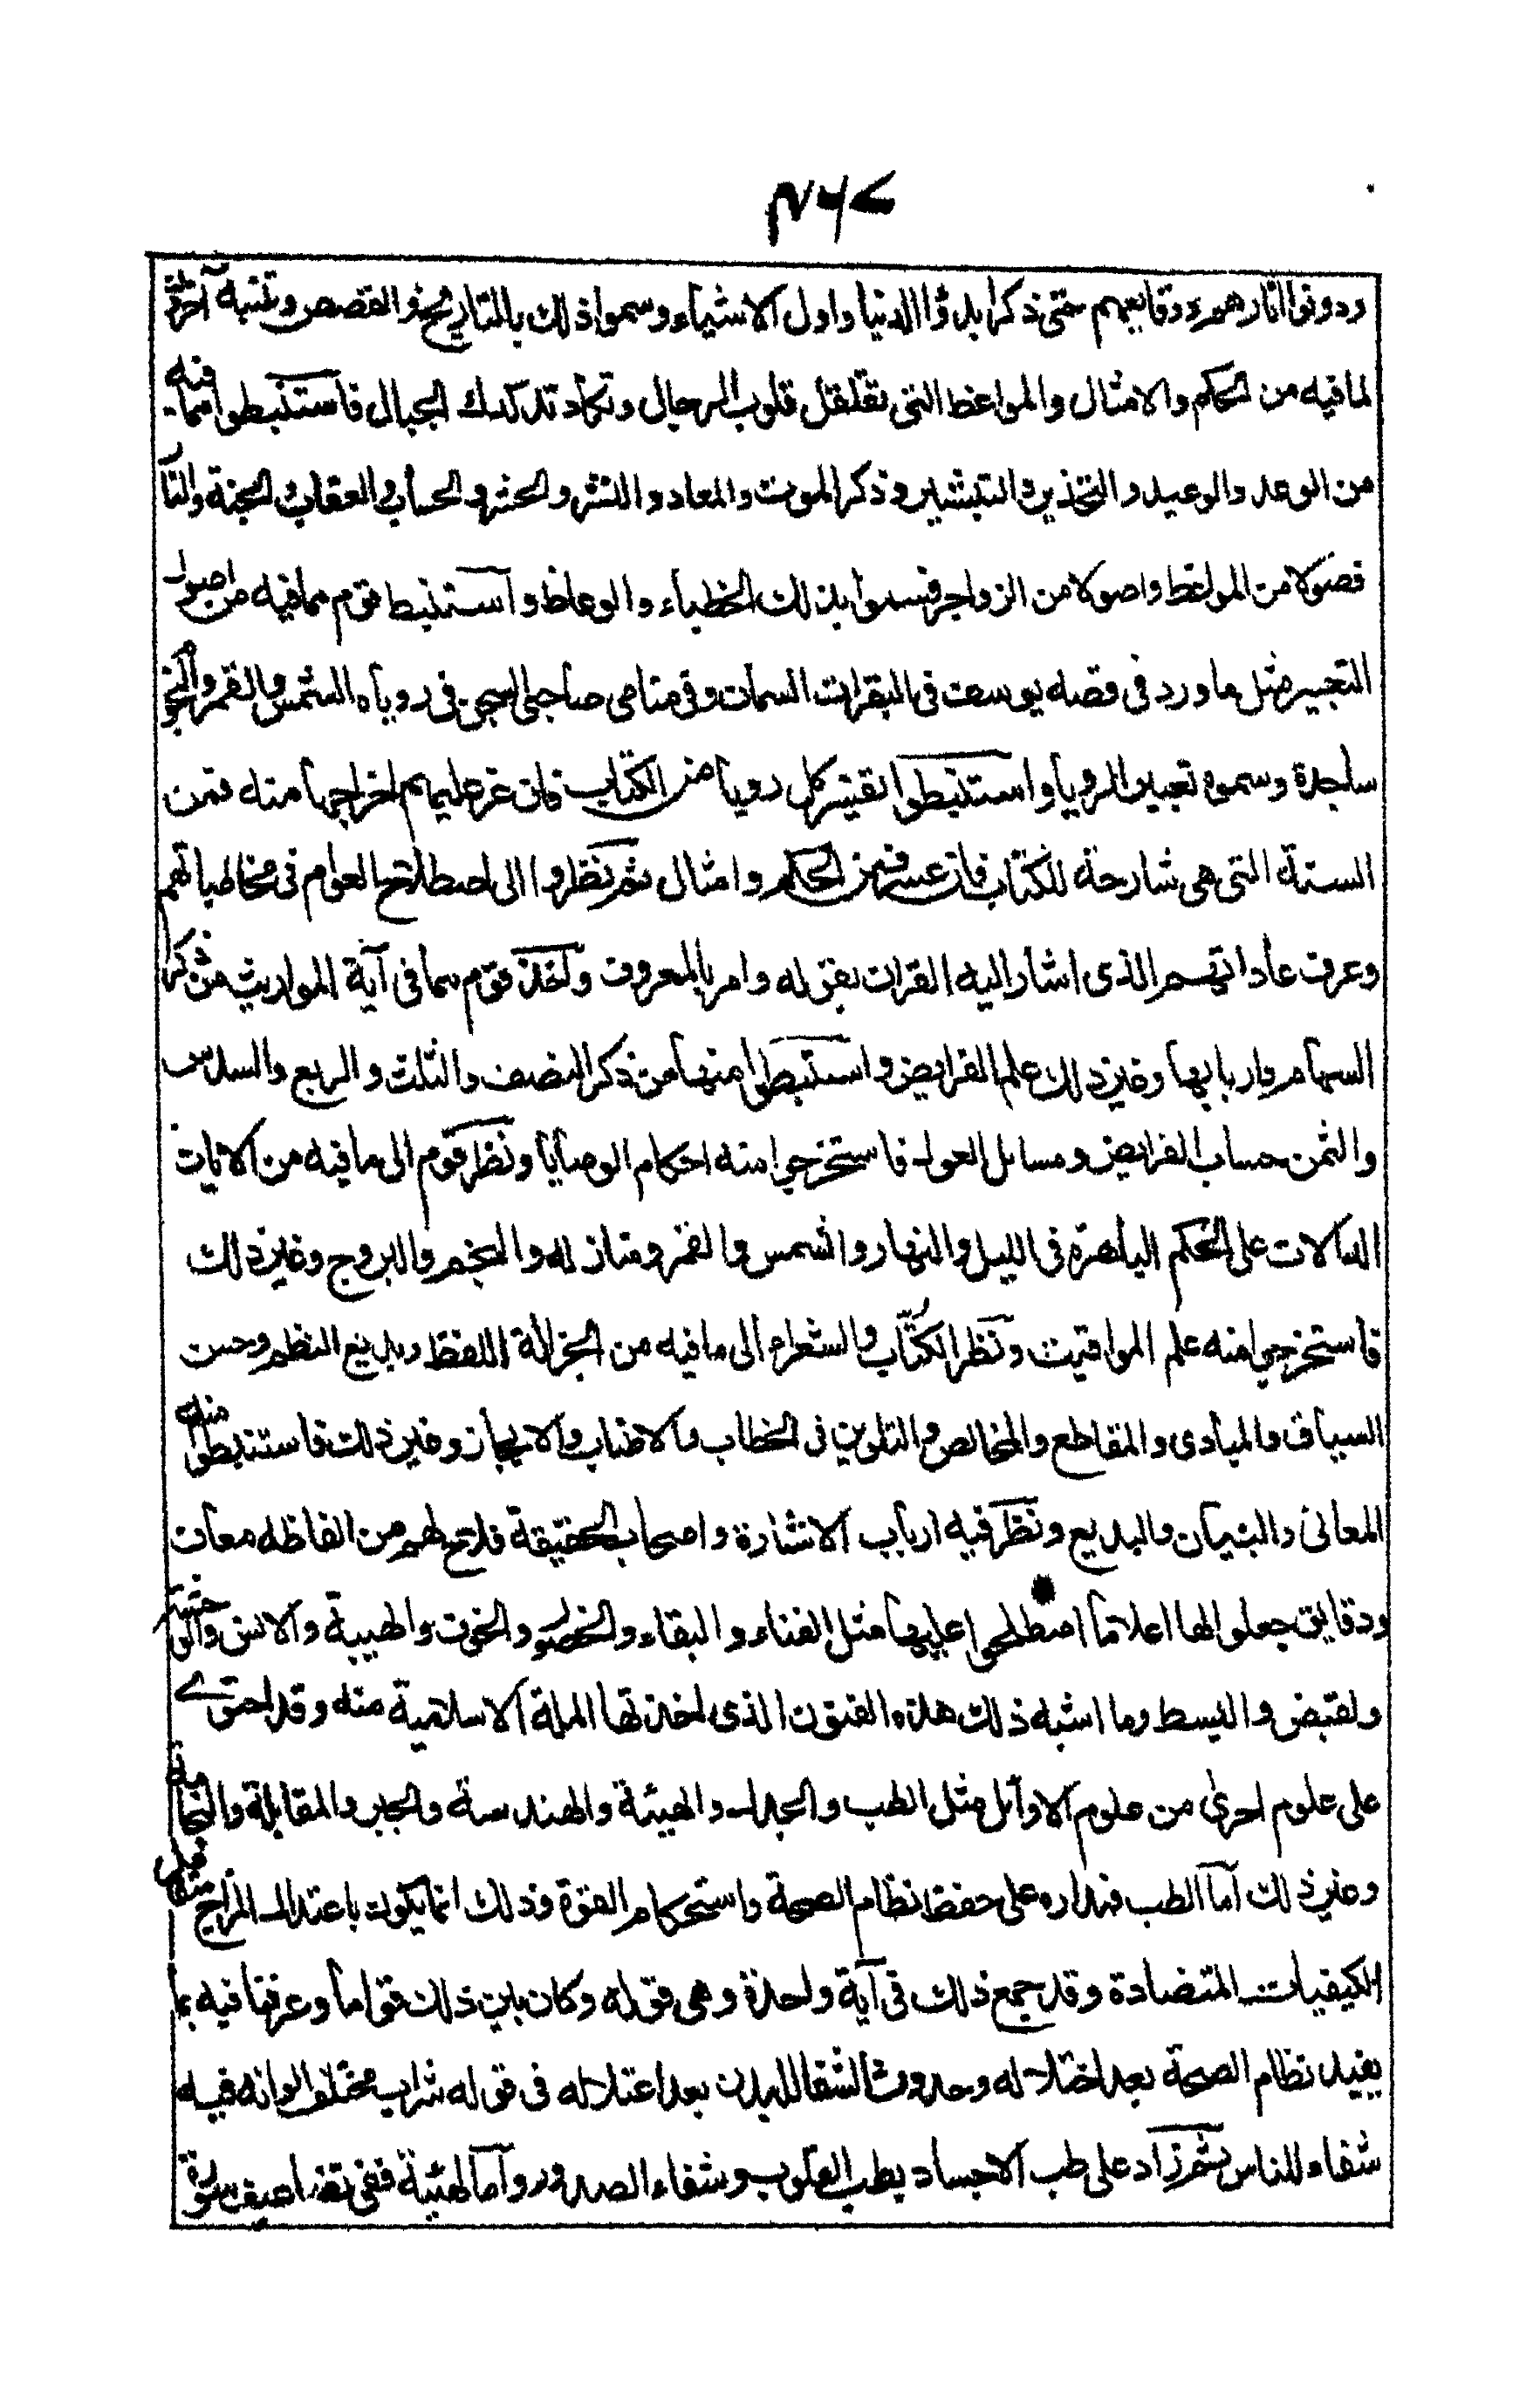 ودونوا اثارهم ووقايعهم حتى ذكرا بدؤا الدنيا واول الاشياء وسموا ذلك بالتاريخ والقصص وتنبه آخرون
لما فيه من الحكم والامثال والمواعظ التى تقلقل قلوب الرجال وتكاد تدكدك الجبال فاستنبطوا مما فيه
من الوعد والوعيد والتحذير والتبشير وذكر الموت والمعاد والنشر والحشر والحساب والعقاب والجنة والنا
فصولا من المواعظ واصولا من الزواجر فسموا بذلك الخطباء والوعاظ واستنبط قوم مما فيه من اصول
التعبير مثل ما ورد فى قصه يوسف فى البقرات السمان وفى منامى صاحبى السجن فى روياه الشمس والقمر والنجوم
ساجدة وسموه تعبير الرويا واستنبطوا تفسير كل رويا من الكتاب فان عز عليهم اخراجها منه فمن
السنة التى هى شارحة للكتاب فان عسر فمن الحكم وامثال ثم نظروا الى اصطلاح العوام فى مخاطباتهم
وعرف عاداتهم الذى اشار اليه القران بقوله وامر بالمعروف واخذ قوم مما فى آية المواريث من ذكر
السهام واربابها وغير ذلك علم الفرايض واستنبطوا منها من ذكر النصف والثلث والربع والسدس
والثمن حساب الفرايض ومسايل العول فاستخرجوا منه احكام الوصايا ونظر قوم الى ما فيه من الايات
الدالات على الحكم الباهرة فى الليل والنهار والشمس والقمر ومنازله والنجم والبروج وغير ذلك
فاستخرجوا منه علم المواقيت ونظر الكتّاب والشعراء الى ما فيه من الجزالة اللفظ وبديع النظم وحسن
السياق والمبادى والمقاطع والمخالص والتلوين فى الخطاب والاطناب والايجاز وغير ذلك فاستنبطوا منه
المعانى والبيان والبديع ونظر فيه ارباب الاشارة واصحاب الحقيقة فلاح لهم من الفاظه معان
ودقايق جعلوا لها اعلاما اصطلحوا عليها مثل الفناء والبقاء والحضو والخوف والهيبة والانس والوحشة
ولقبض والبسط وما اشبه ذلك هذه الفنون الذى اخذتها الملة الاسلامية منه وقد احتوى
على علوم اخرى من علوم الاوائل مثل الطب والجدل والهيئة والهندسة والجبر والمقابلة والنجامة
وغير ذلك اما الطب فمداره على حفظ نظام الصحة واستحكام القوة وذلك انما يكون باعتدال المزاج
الكيفيات المتضادة وقد جمع ذلك فى آية واحدة وهى قوله وكان بين ذلك قواما وعرفنا فيه بما
يفيد نظام الصحة بعد اختلاله وحدوث الشفا للبدن بعد اعتلاله فى قوله شراب مختلف الوانه فيه
شفاء للناس ثم زاد على طب الاجساد بطب القلوب وشفاء الصدور واما الهيئة ففى تضاعيف سورة